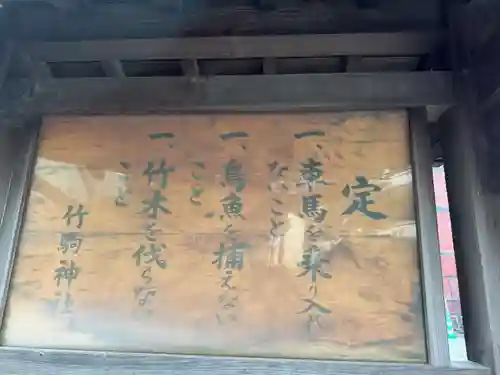 定
一、車馬を乗り入れ
ないこと
一、鳥魚を捕えない
こと
一、竹木を伐らない
こと
竹駒神社